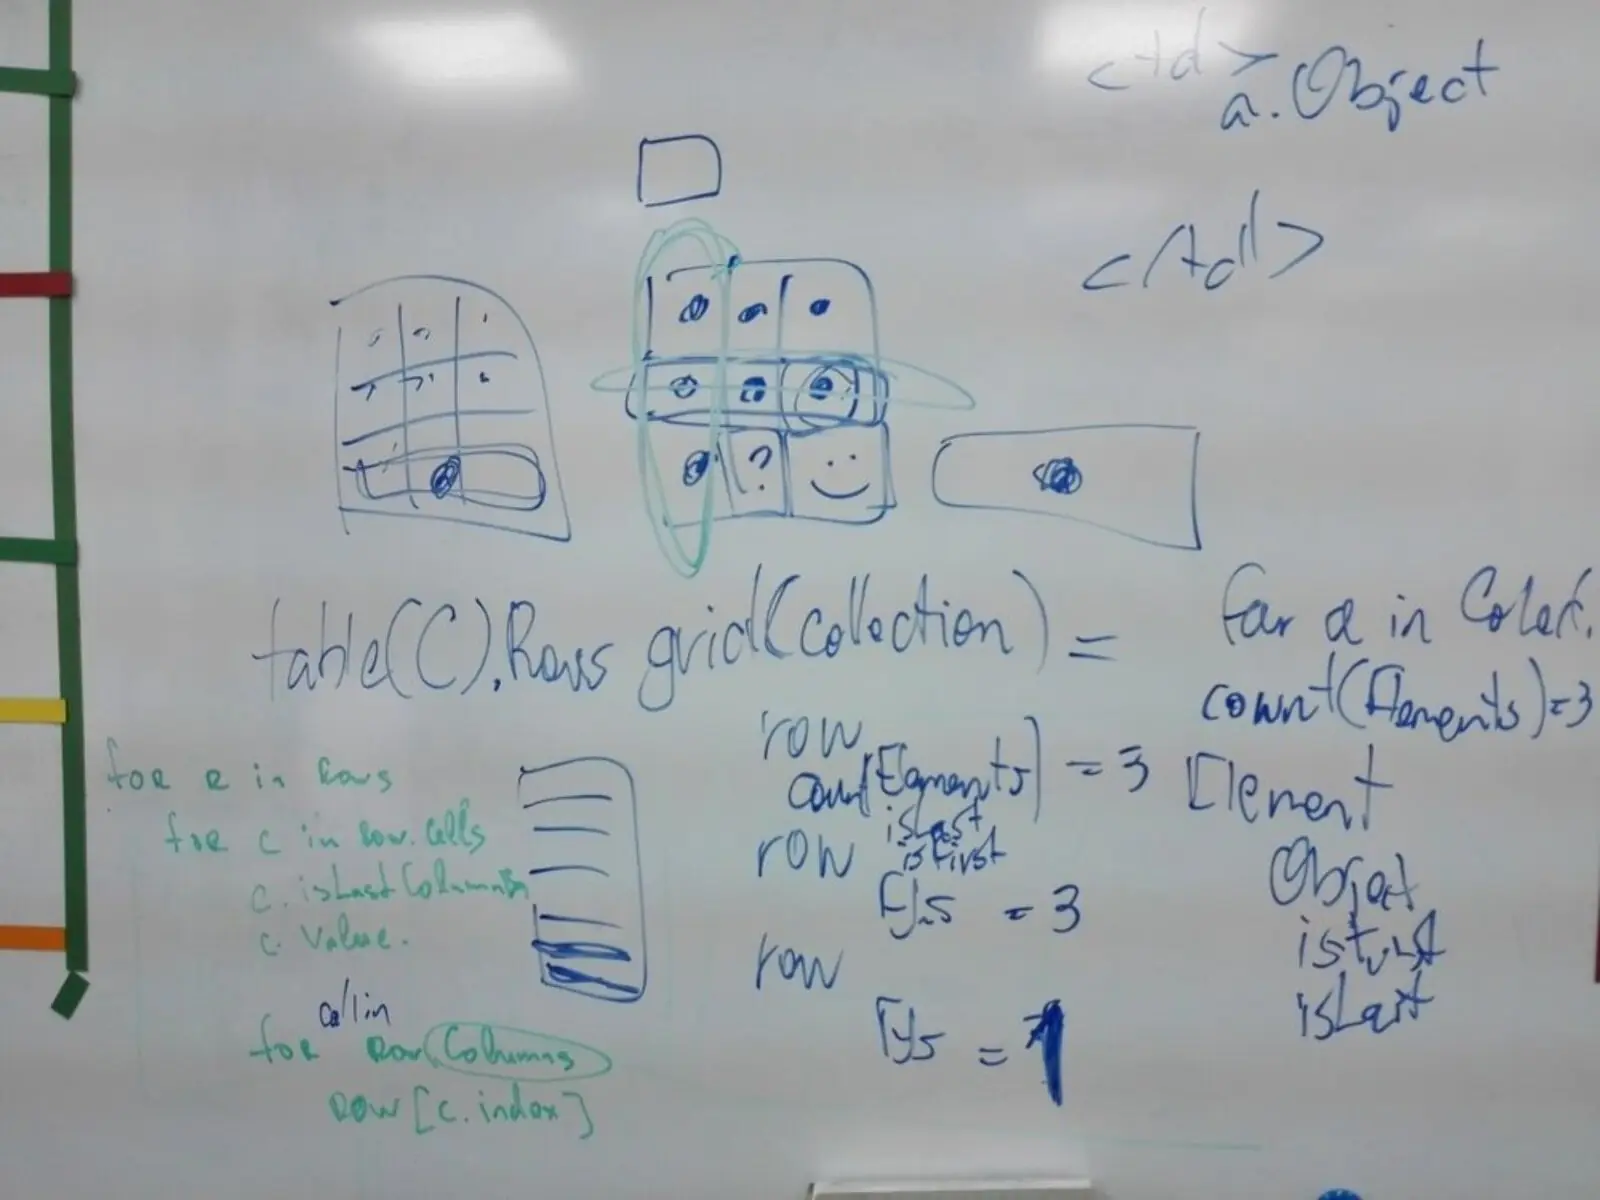 <td>
a.Object
</td>
?
table(C).Rows grid(collection) =
for a in Colect.
count(Elements)=3
Element
Object
isFirst
isLast
row
count(Elements) = 3
row isLast
isFirst
Els = 3
row
Els = 1
for R in Rows
for c in Row.Cells
c. isLastColumn
c. Value.
for col in Row.Columns
Row [c. index]